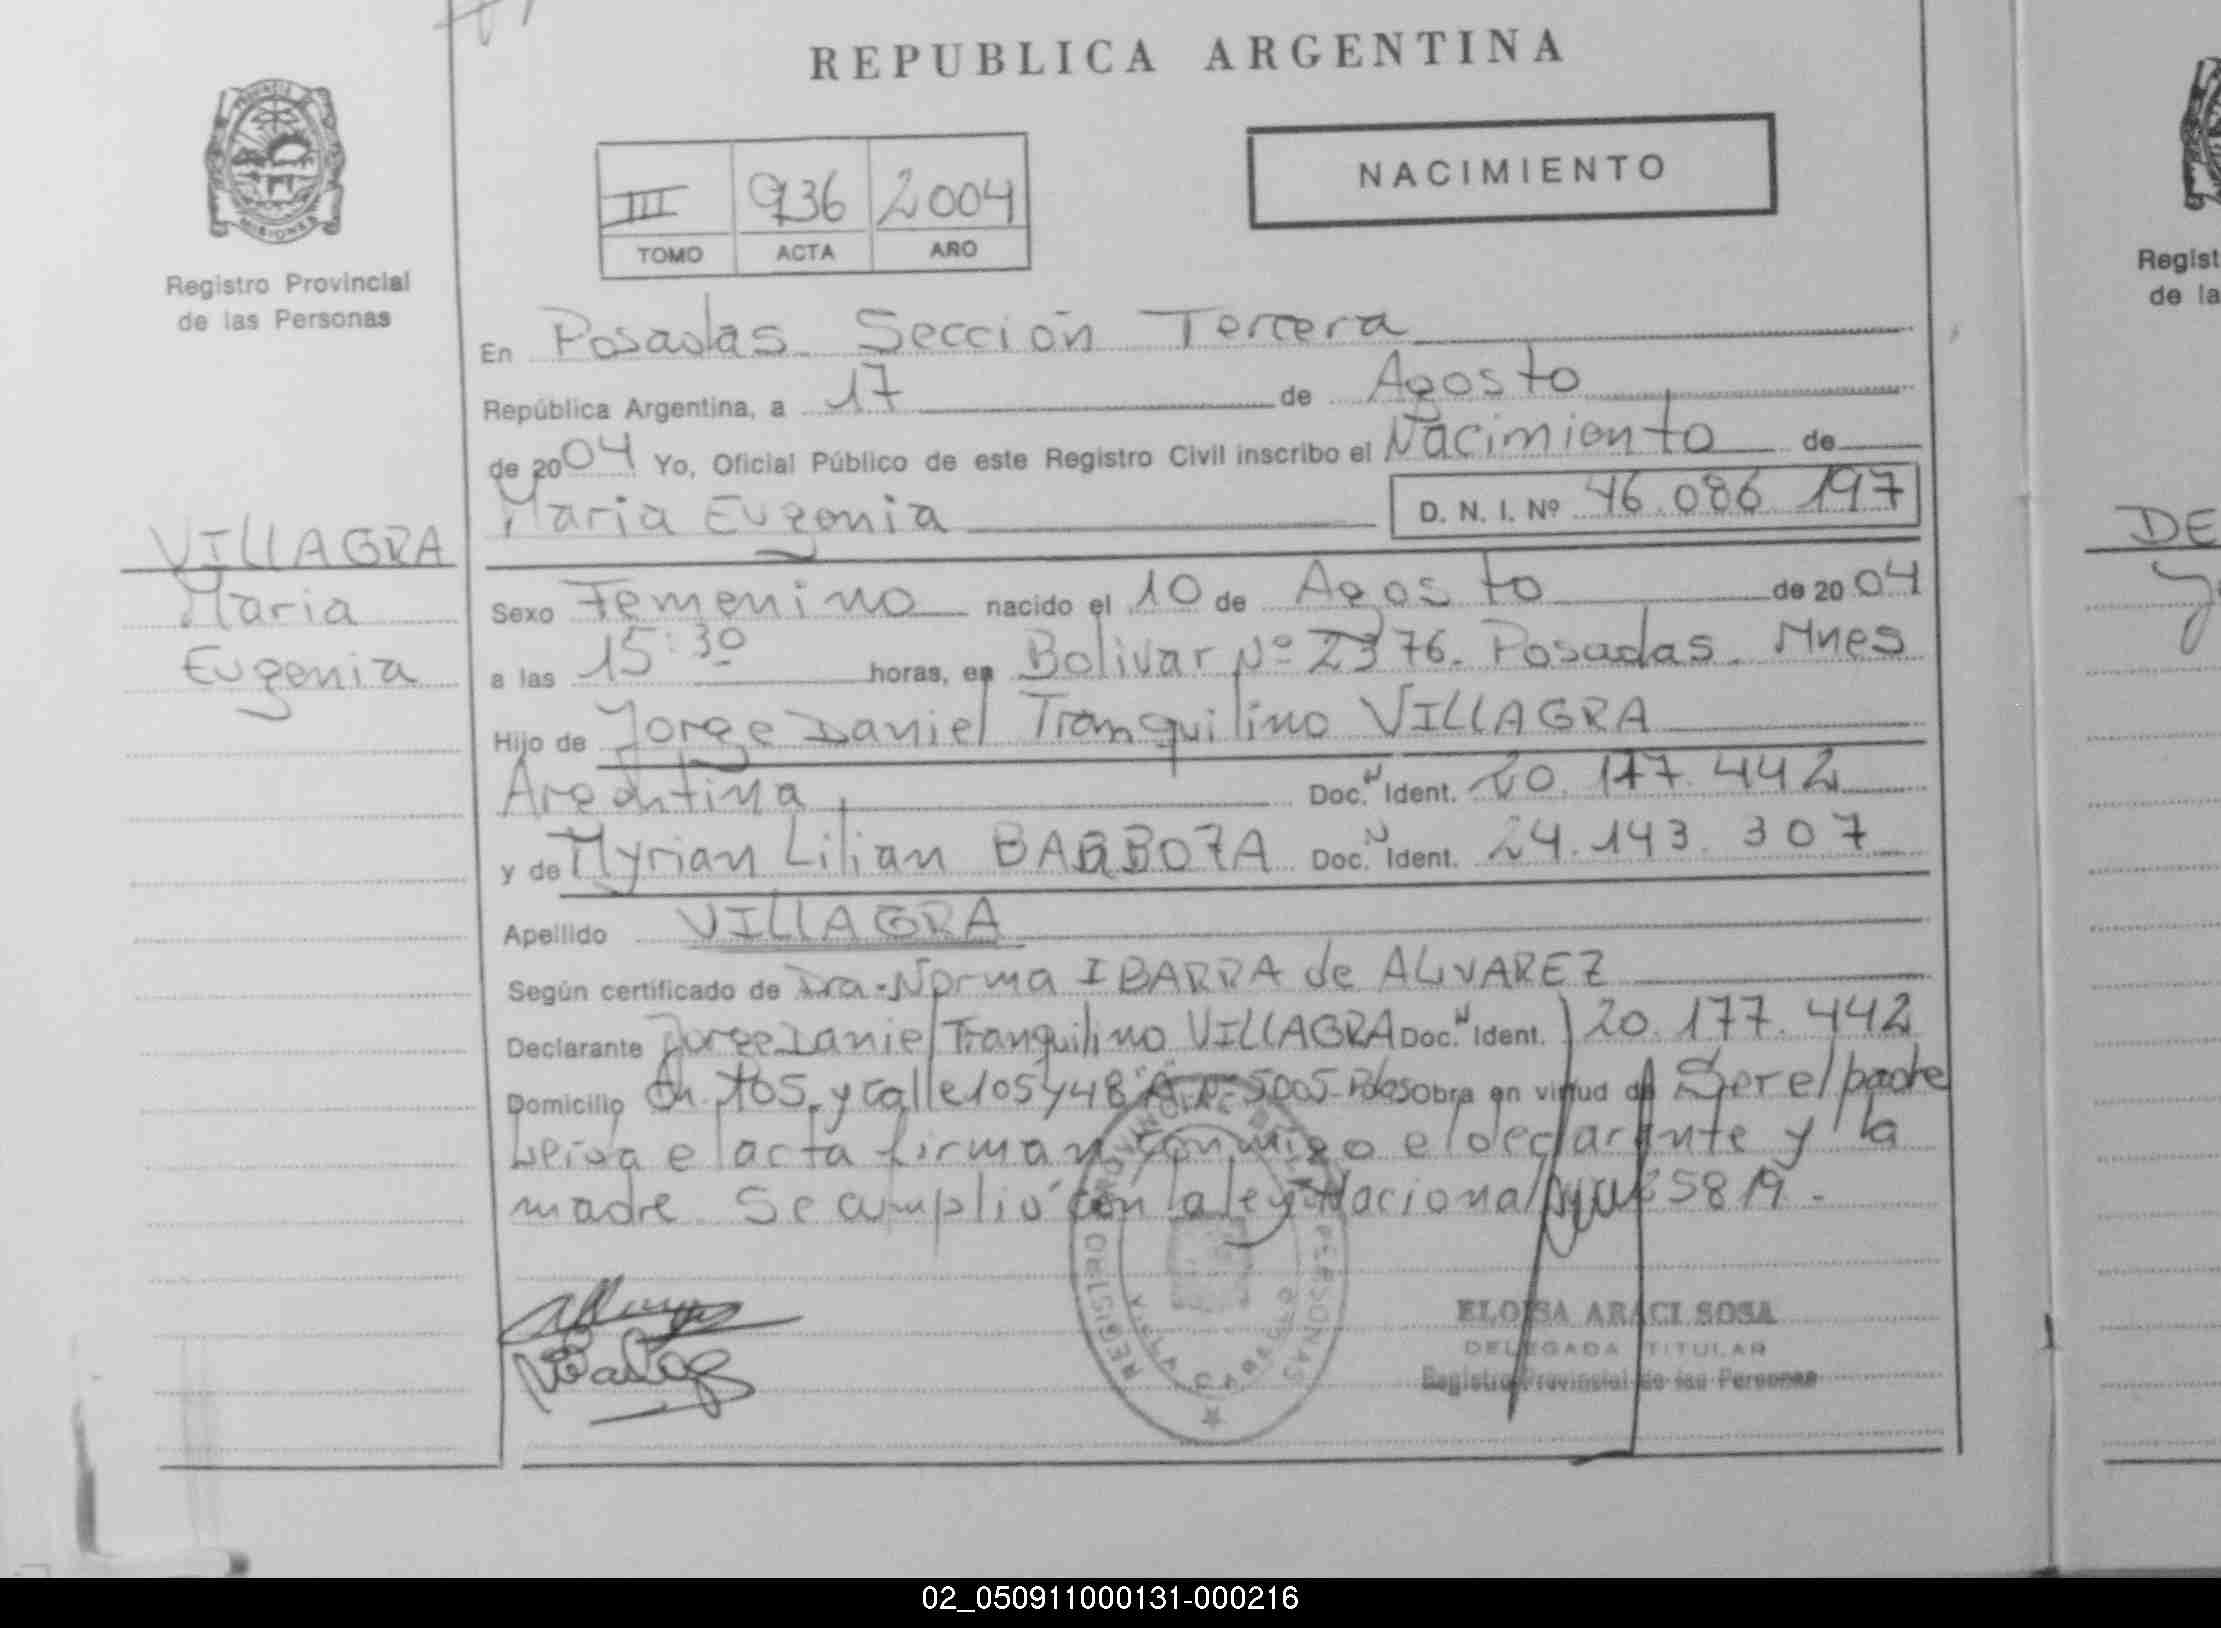 REPUBLICA ARGENTINA
PROVINCIA DE
MISIONES
Registro Provincial
de las Personas
III 936 2004
TOMO ACTA AÑO
NACIMIENTO
En Posadas. Sección Tercera
República Argentina, a 17 de Agosto
de 2004 Yo, Oficial Público de este Registro Civil inscribo el Nacimiento de
Maria Eugenia D. N. I. Nº 46.086.197
VILLAGRA
Maria
Eugenia
Sexo Femenino nacido el 10 de Agosto de 2004
a las 15:30 horas, en Bolivar Nº 2376. Posadas. Mnes
Hijo de Jorge Daniel Tranquilino VILLAGRA
Argentina Doc. N Ident. 20.177.442
y de Myrian Lilian BARBOZA Doc. N Ident. 24.143.307
Apellido VILLAGRA
Según certificado de Dra. Norma IBARRA de ALVAREZ
Declarante Jorge Daniel Tranquilino VILLAGRA Doc. N Ident. 20.177.442
Domicilio Ch. 105. y calle 105 y 48 5005 - Pdas Obra en virtud de Ser el padre
Leida el acta firman conmigo el declarante y la
madre. Se cumplió con la ley Nacional 25819.-
REGISTRO PROVINCIAL DE LAS PERSONAS
POSADAS
ELOISA ARACI SOSA
DELEGADA TITULAR
Registro Provincial de las Personas
Regist
de la
DE
02_050911000131-000216